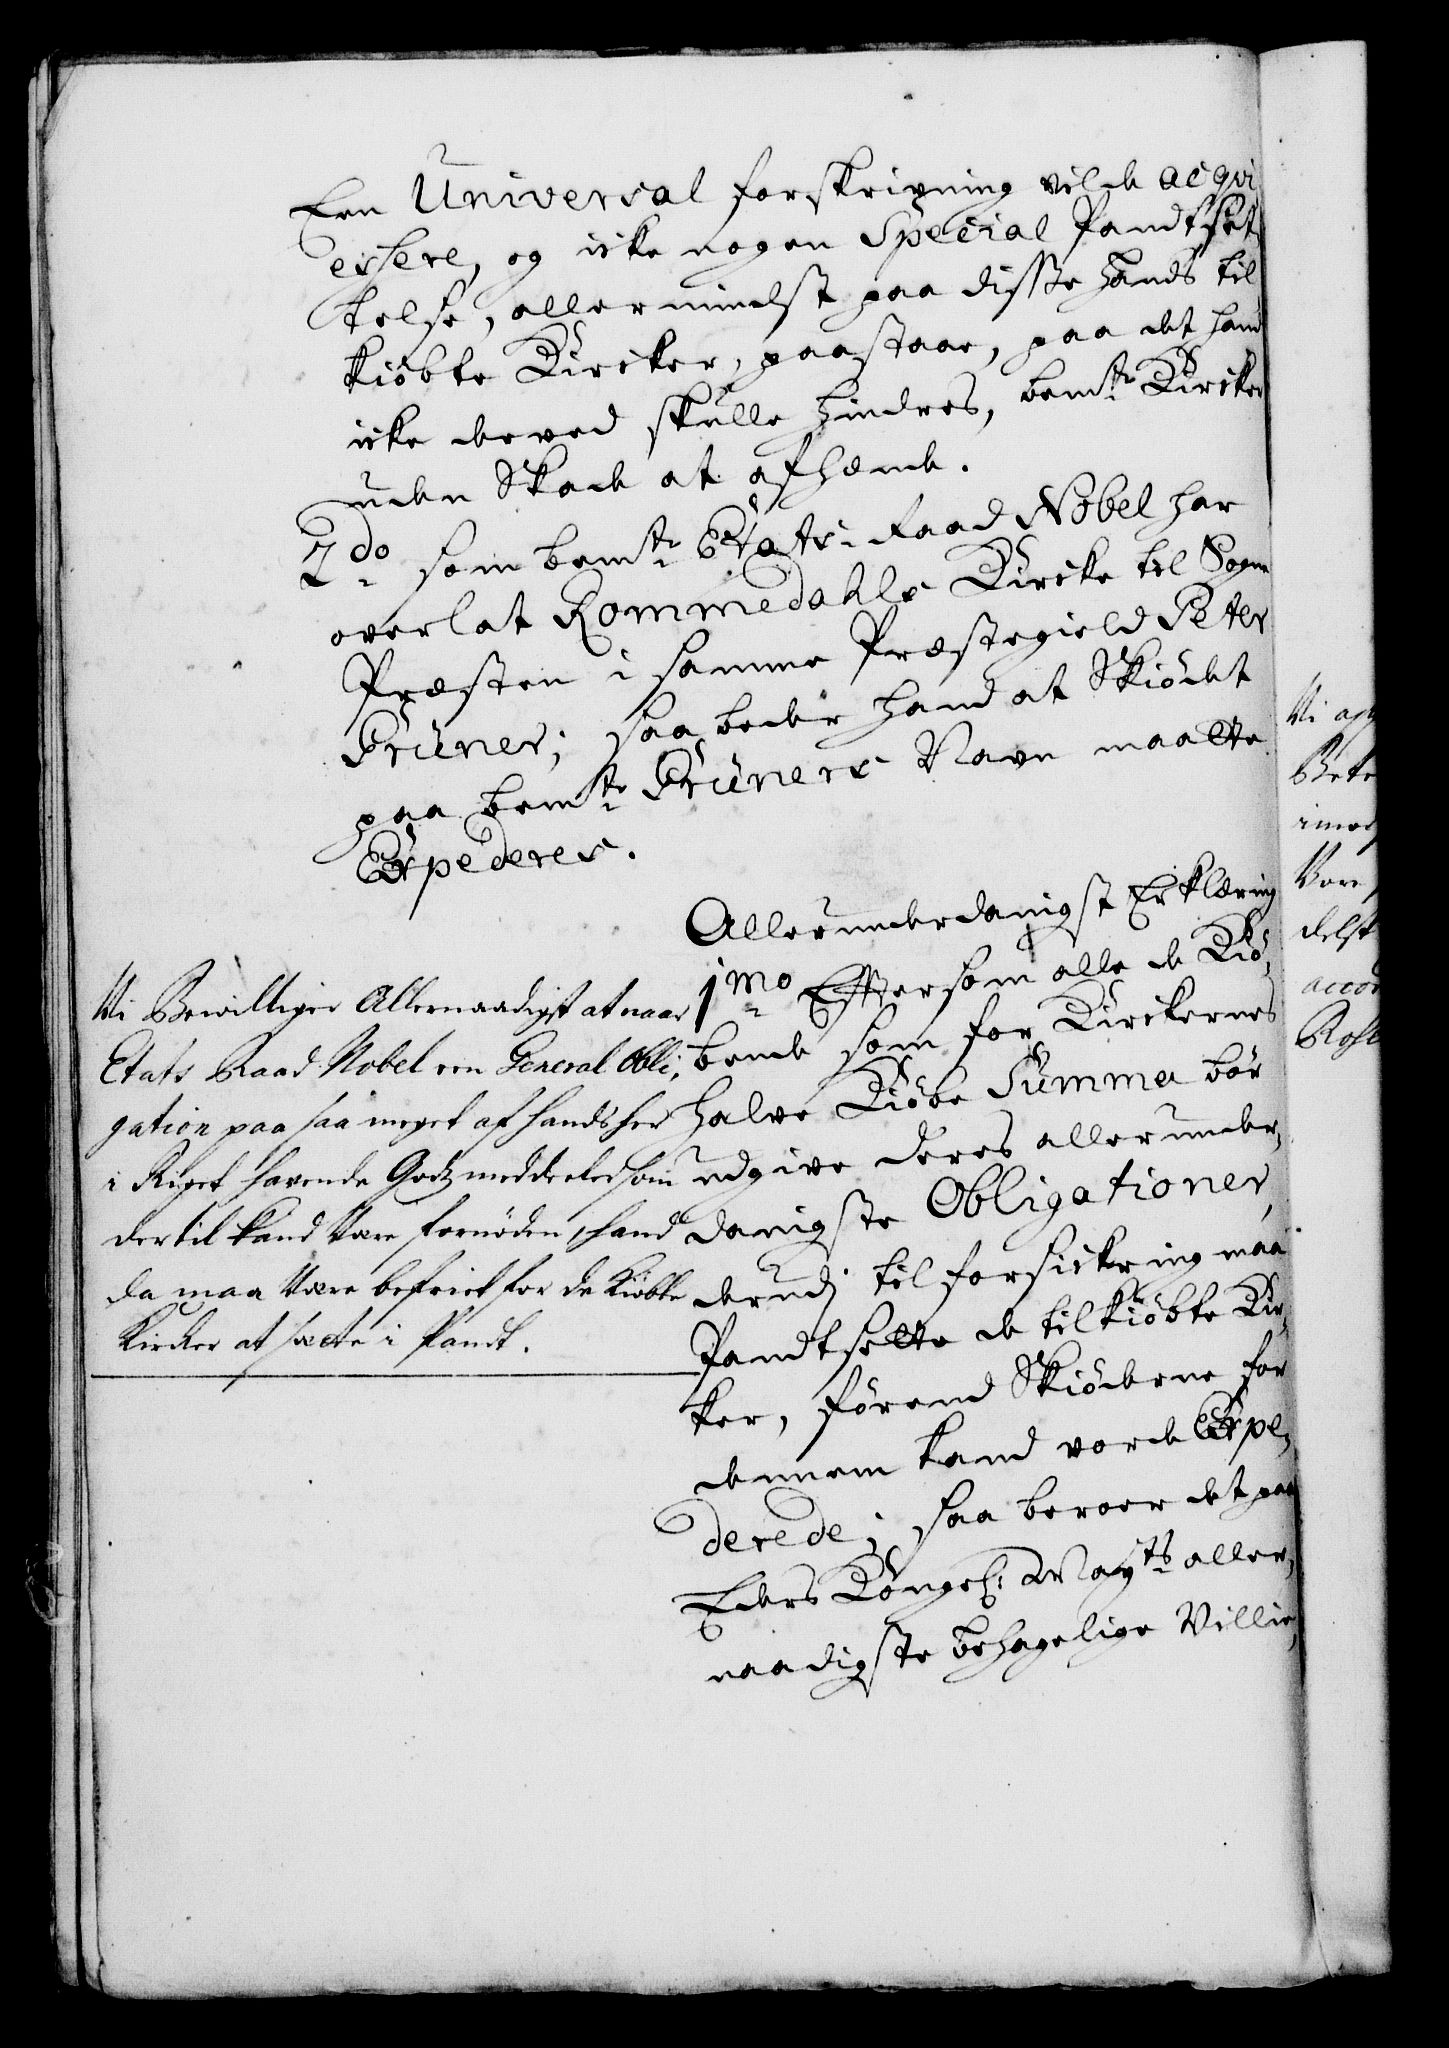 Een Universal forskrivning vilde acqvi
escere, og icke nogen Special Pandtsæt
telse, allermindst paa disse hands til
kiöbte Kircker, paastaae, paa det hand
icke derved skulle hindres, bemte Kircker
uden Skade at afhænde.
2do som bemte Etats-Raad Nobel har
overlat Rommedahls Kircke til Sogne
Præsten i samme Præstegield Peter
Brüner; saa beder hand at Skiödet
paa bemte Brüners Navn maatte
Expederes.
Allerunderdanigst Erklæring
1mo Eftersom alle de Kiö,
bende som for Kirckernes
halve Kiöbe Summa bör
udgive deres allerunder,
danigste Obligationer,
derudj til forsickring maa
Pandtsette de tilkiöbte Kir,
ker, förend Skiöderne for
dennem kand vorde Expe,
derede; saa beroer det paa
Eders Kongel: Mayts aller,
naadigste behagelige Villie,
Vi Bewilliger Allernaadigst at naar
Etats Raad Nobel een General Obli,
gation paa saa meget af hands her
i Riget havende Godz meddeeler som
dertil kand være fornöden, hand
da maa være befriet for de kiöbte
Kircker at sætte i Pandt.
Vi
imod
Vore
delst